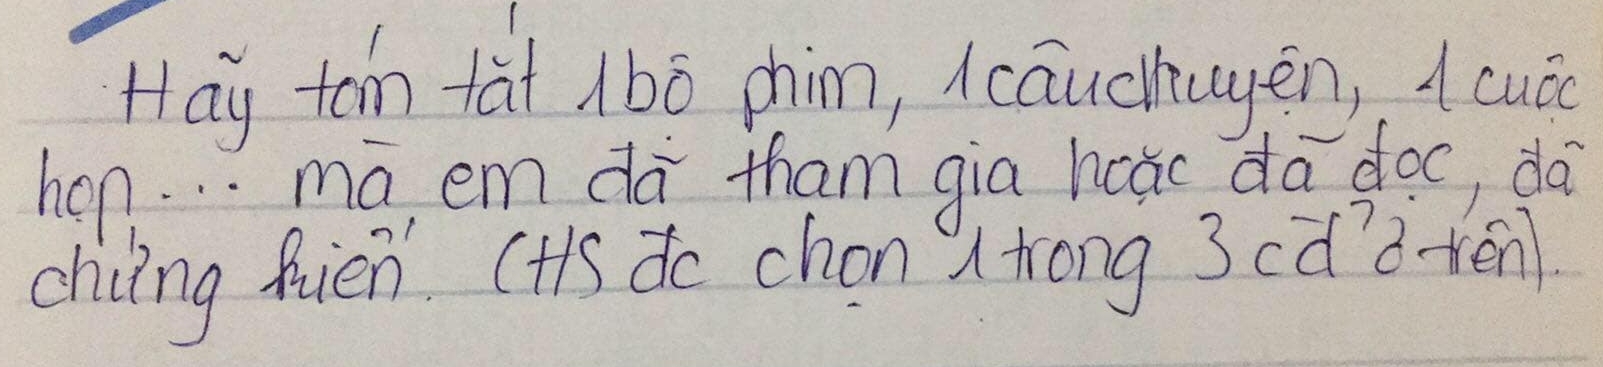 Hãy tóm tắt 1 bộ phim, 1 câu chuyện, 1 cuộc
họp... mà em đã tham gia hoặc đã đọc, đã
chứng kiến. (HS đc chọn 1 trong 3 cđ ở trên).